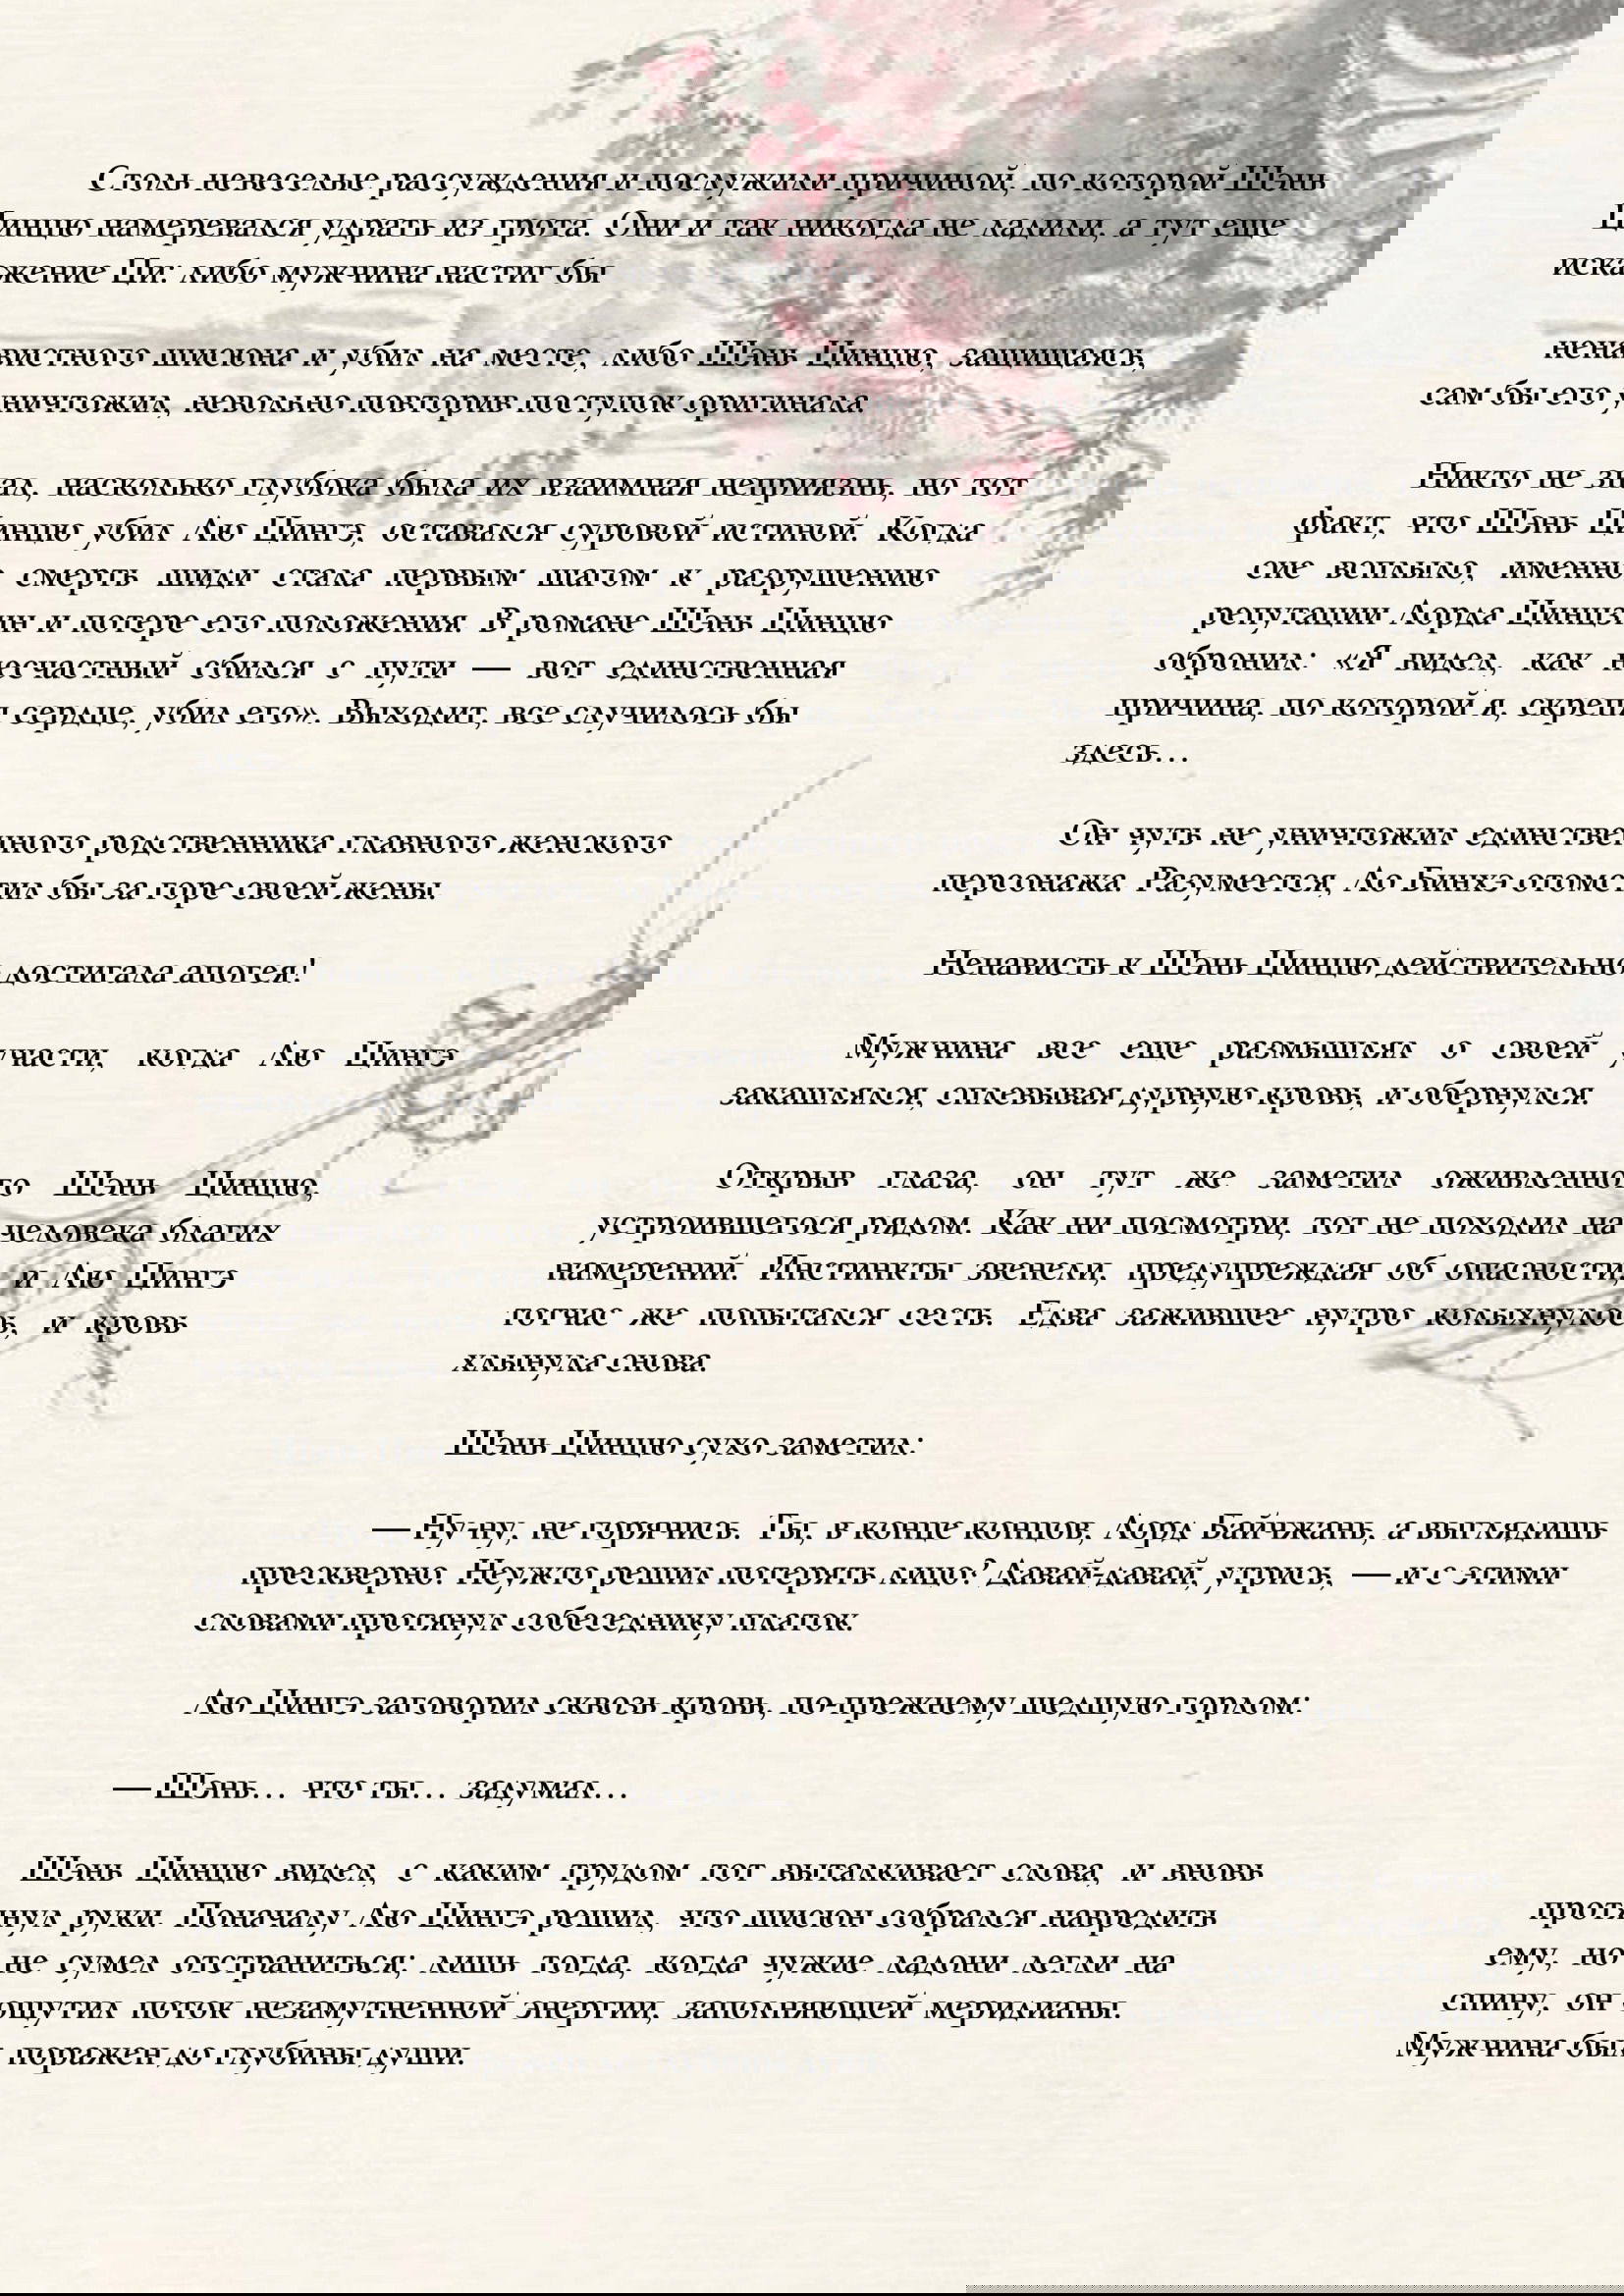 Столь невеселые рассуждения и послужили причиной, по которой Шэнь
Цинцю намеревался удрать из грота. Они и так никогда не ладили, а тут еще
искажение Ци: либо мужчина настиг бы
ненавистного шисюна и убил на месте, либо Шэнь Цинцю, защищаясь,
сам бы его уничтожил, невольно повторив поступок оригинала.
Никто не знал, насколько глубока была их взаимная неприязнь, но тот
факт, что Шэнь Цинцю убил Лю Цингэ, оставался суровой истиной. Когда
сие всплыло, именно смерть шиди стала первым шагом к разрушению
репутации Лорда Цинцзин и потере его положения. В романе Шэнь Цинцю
обронил: «Я видел, как несчастный сбился с пути — вот единственная
причина, по которой я, скрепя сердце, убил его». Выходит, все случилось бы
здесь…
Он чуть не уничтожил единственного родственника главного женского
персонажа. Разумеется, Ло Бинхэ отомстил бы за горе своей жены.
Ненависть к Шэнь Цинцю действительно достигала апогея!
Мужчина все еще размышлял о своей участи, когда Лю Цингэ
закашлялся, сплевывая дурную кровь, и обернулся.
Открыв глаза, он тут же заметил оживленного Шэнь Цинцю,
устроившегося рядом. Как ни посмотри, тот не походил на человека благих
намерений. Инстинкты звенели, предупреждая об опасности, и Лю Цингэ
тотчас же попытался сесть. Едва зажившее нутро колыхнулось, и кровь
хлынула снова.
Шэнь Цинцю сухо заметил:
— Ну-ну, не горячись. Ты, в конце концов, Лорд Байчжань, а выглядишь
прескверно. Неужто решил потерять лицо? Давай-давай, утрись, — и с этими
словами протянул собеседнику платок.
Лю Цингэ заговорил сквозь кровь, по-прежнему шедшую горлом:
— Шэнь… что ты… задумал…
Шэнь Цинцю видел, с каким трудом тот выталкивает слова, и вновь
протянул руки. Поначалу Лю Цингэ решил, что шисюн собрался навредить
ему, но не сумел отстраниться; лишь тогда, когда чужие ладони легли на
спину, он ощутил поток незамутненной энергии, заполняющей меридианы.
Мужчина был поражен до глубины души.